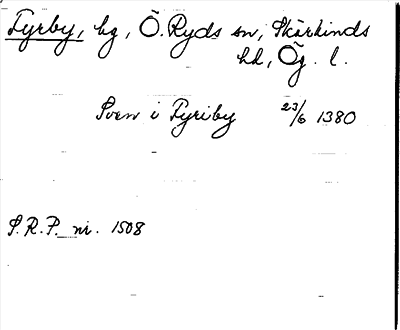 Fyrby, bg, Ö. Ryds sn, Skärkinds
hd, Ög. l.
Sven i Fyriby 23/6 1380
S.R.P. nr. 1508